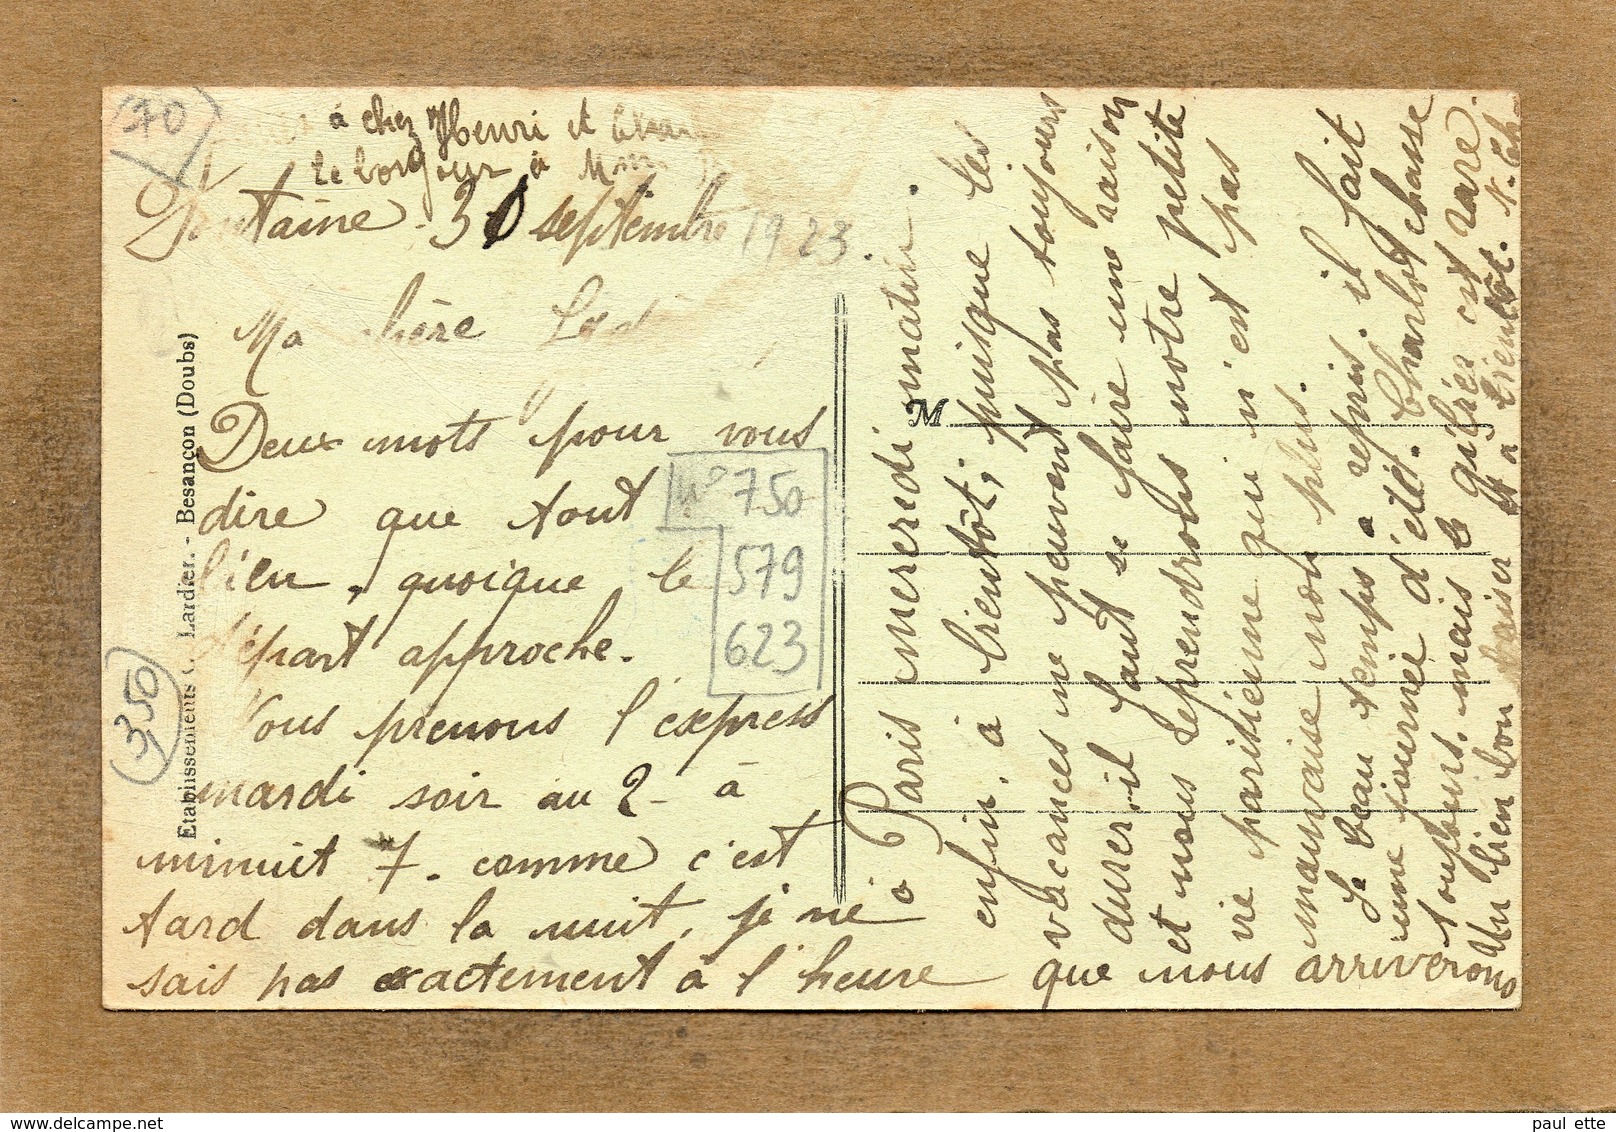 à chez Henri et
le bonjour à
Fontaine 30 septembre 1923.
Ma chère
Deux mots pour vous
dire que tout
bien, quoique le
départ approche.
Nous prenons l'express
mardi soir au 2 à
minuit 7. comme c'est
tard dans la nuit, je ne
sais pas exactement à l'heure que nous arriverons
à Paris mercredi matin.
enfin, à bientôt, puisque les
vacances ne peuvent pas toujours
durer, il faut se faire une raison
et nous reprendrons notre petite
vie parisienne qui n'est pas
mauvaise non plus.
Le beau temps a repris. il fait
une journée d'été. Charlot chasse
toujours. mais le gibier est rare.
Un bien bon baiser et à bientôt.
70
3,50
N° 750
579
623
M
Etablissements C. Lardier. - Besançon (Doubs)
paul ette